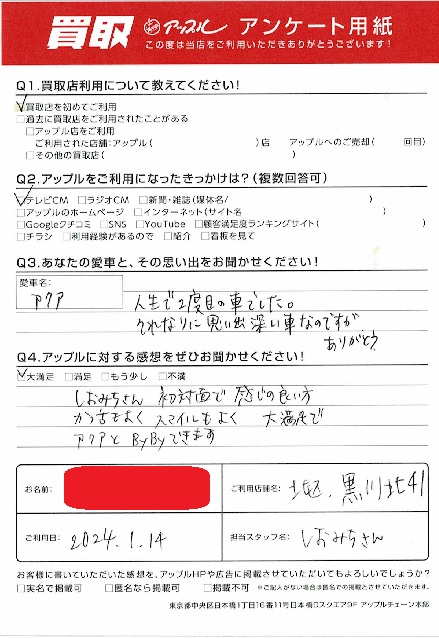 買取 アップル アンケート用紙
この度は当店をご利用いただきありがとうございます!
Q1.買取店利用について教えてください!
☑買取店を初めてご利用
□過去に買取店をご利用されたことがある
□アップル店をご利用
ご利用された店舗:アップル( )店 アップルへのご売却( 回目)
□その他の買取店( )
Q2.アップルをご利用になったきっかけは?(複数回答可)
☑テレビCM □ラジオCM □新聞・雑誌(媒体名/ )
□アップルのホームページ □インターネット(サイト名 )
□Googleクチコミ □SNS □YouTube □顧客満足度ランキングサイト( )
□チラシ □利用経験があるので □紹介 □看板を見て
Q3.あなたの愛車と、その思い出をお聞かせください!
愛車名:
アクア
人生で2度目の車でした。
それなりに思い出深い車なのですが
ありがとう
Q4.アップルに対する感想をぜひお聞かせください!
☑大満足 □満足 □もう少し □不満
しおみちさん 初対面で感じの良い方
スマイルもよく 大満足で
アクアとByByできます
お名前:
ご利用店舗名: 黒川北41
ご利用日: 2024.1.14
担当スタッフ名: しおみちさん
お客様に書いていただいた感想を、アップルHPや広告に掲載させていただいてもよろしいでしょうか?
□実名で掲載可 □匿名なら掲載可 □掲載不可 ※ご記入がない場合は匿名での掲載とさせていただきます。
東京都中央区日本橋1丁目16番11号日本橋Dスクエア9F アップルチェーン本部